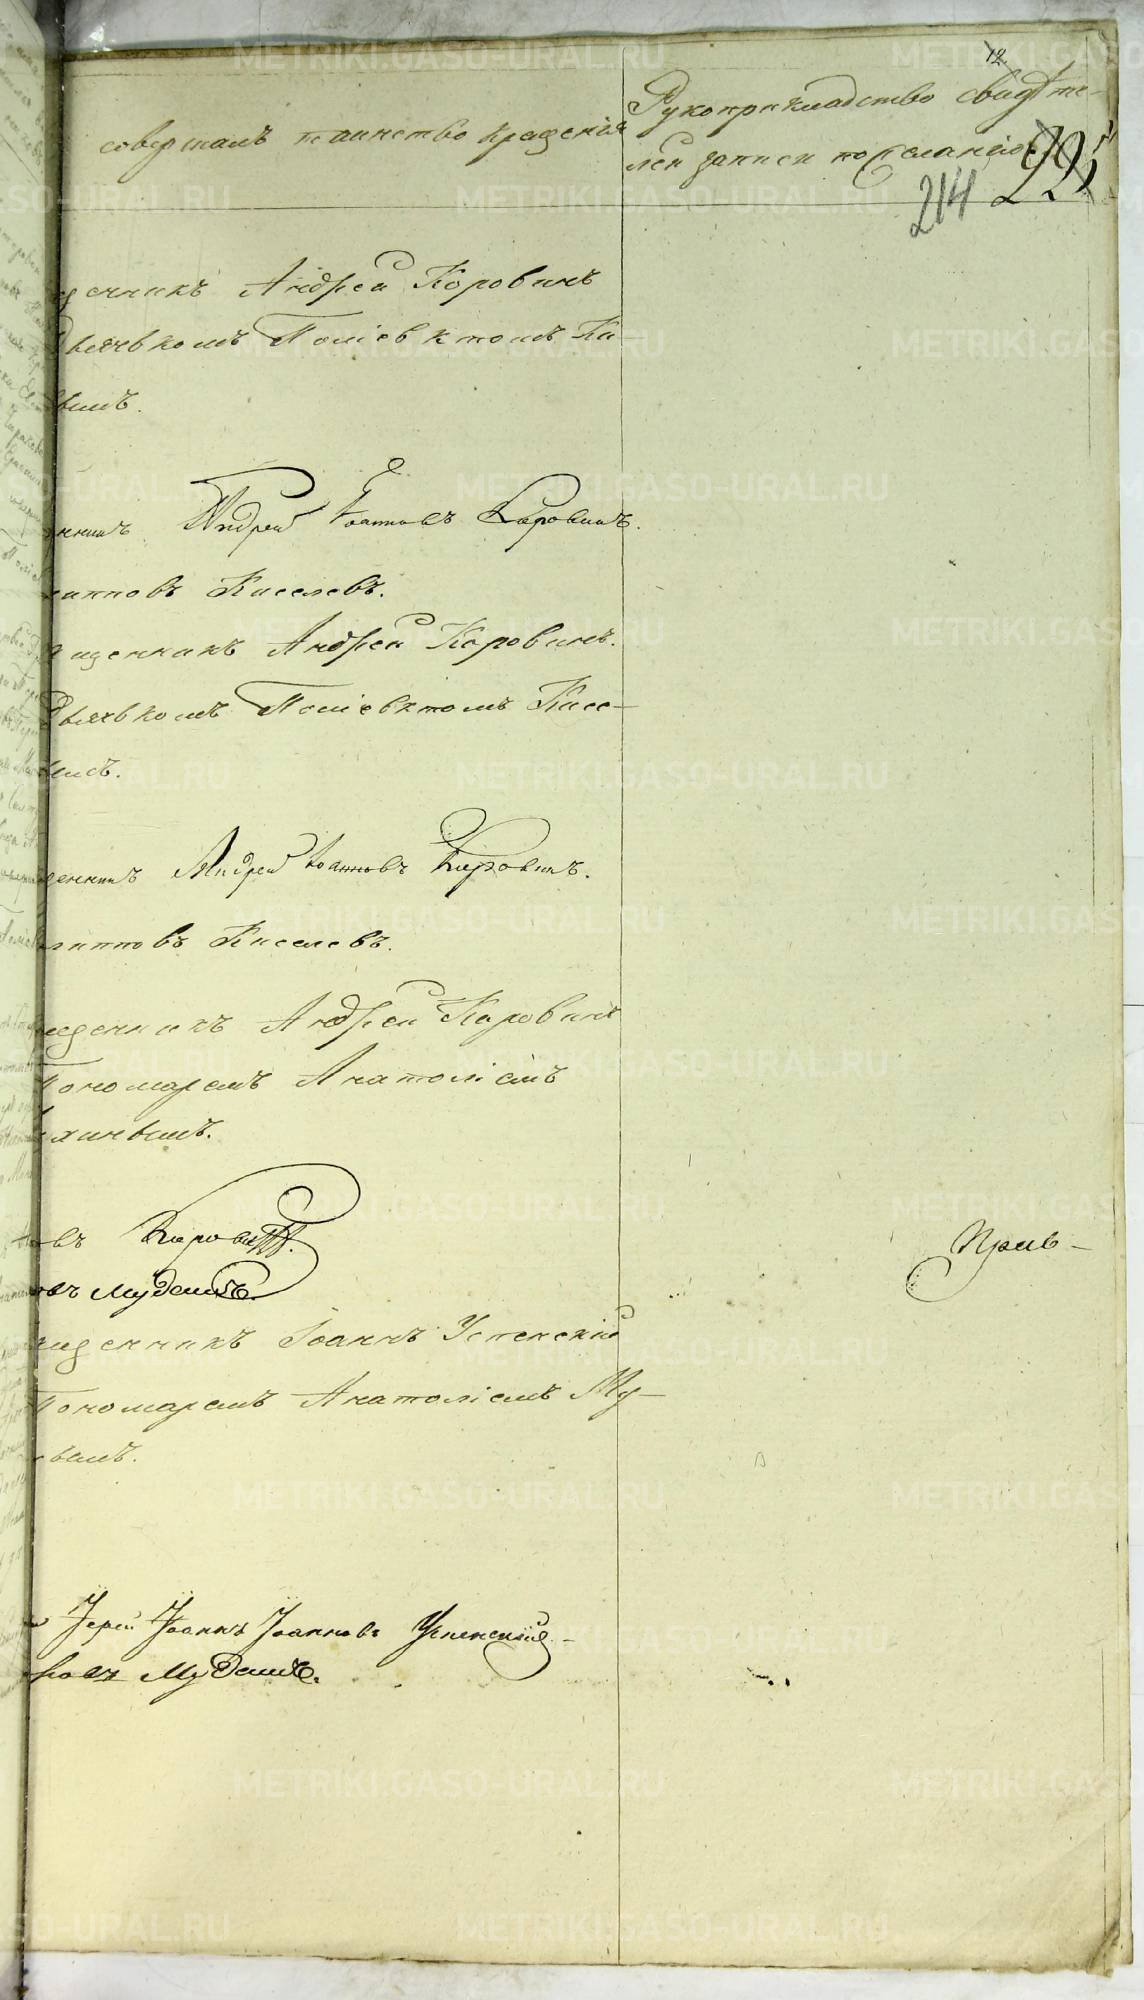 12
совершалъ таинство крещенія
Рукоприкладство свидѣте-
лей записи по желанію
214 225
щенникъ Андрей Коровинъ
Дьячькомъ Поліевктомъ Ки-
вымъ.
Андрей Іоанновъ Коровинъ.
липповъ Киселевъ.
щенникъ Андрей Коровинъ.
Дьячькомъ Поліевктомъ Кисе-
вымъ.
щенникъ Андрей Іоанновъ Коровинъ.
липповъ Киселевъ.
щенникъ Андрей Коровинъ
Пономаремъ Анатоліемъ
новъ Коровинъ.
Прив-
щенникъ Іоаннъ Успенскій
Пономаремъ Анатоліемъ Му-
вымъ.
Іерей Іоаннъ Іоанновъ Успенскій
METRIKI.GASO-URAL.RU